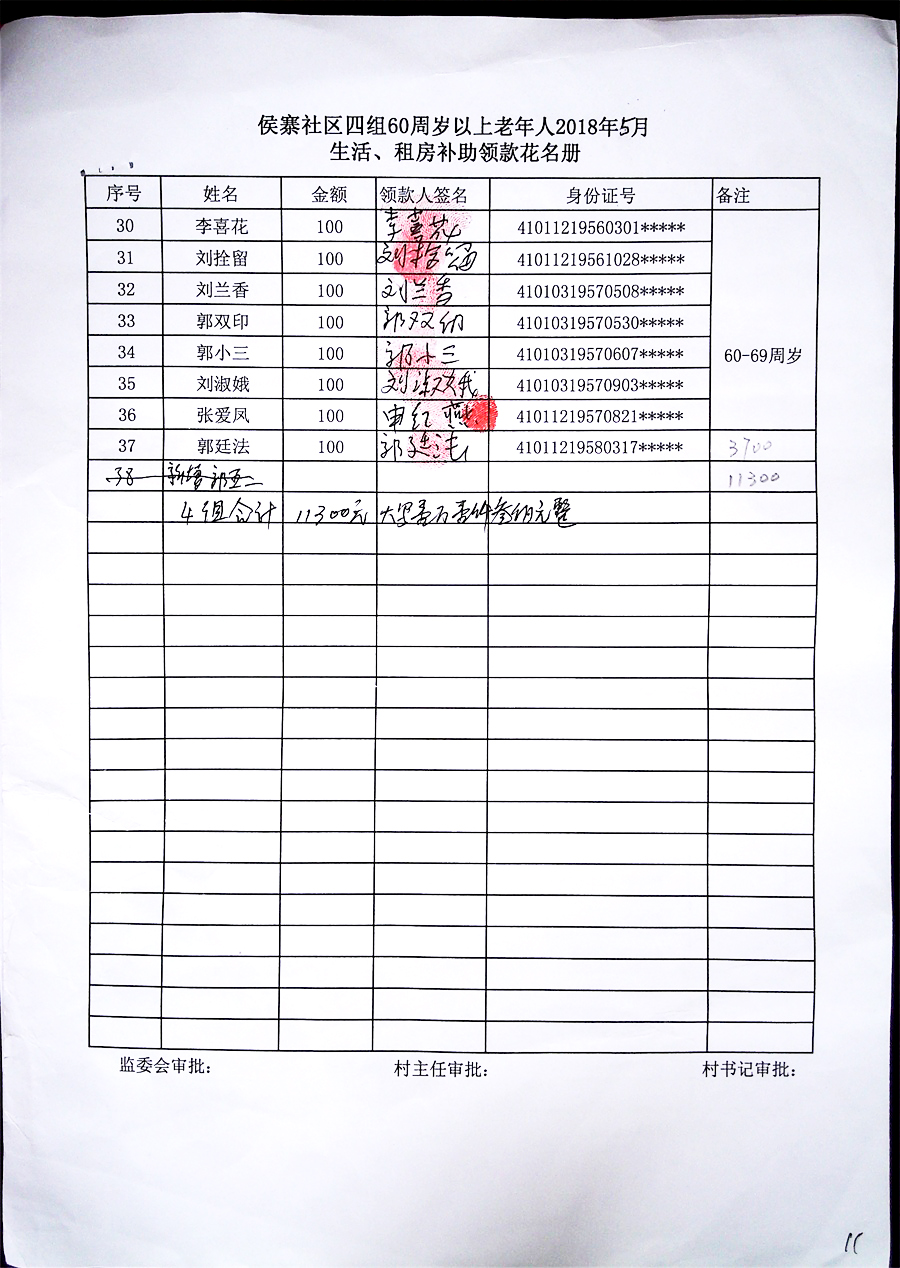 侯寨社区四组60周岁以上老年人2018年5月
生活、租房补助领款花名册
序号 姓名 金额 领款人签名 身份证号 备注
30 李喜花 100 李喜花 41011219560301*****
31 刘拴留 100 刘拴留 41011219561028*****
32 刘兰香 100 刘兰香 41010319570508*****
33 郭双印 100 郭双印 41010319570530*****
34 郭小三 100 郭小三 41010319570607***** 60-69周岁
35 刘淑娥 100 刘淑娥 41010319570903*****
36 张爱凤 100 申红燕 41011219570821*****
37 郭廷法 100 郭廷法 41011219580317***** 3700
38 新增郭五二 11300
4组合计 11300元 大写壹万壹仟叁佰元整
监委会审批: 村主任审批: 村书记审批:
11